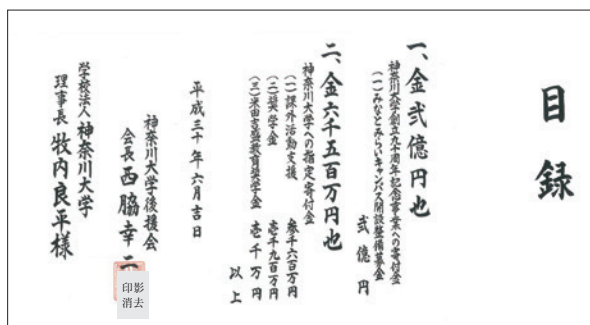 目録
一、金弐億円也
神奈川大学創立九十周年記念事業への寄付金
(一)みなとみらいキャンパス開設整備募金
弐億円
二、金六千五百万円也
神奈川大学への指定寄付金
(一)課外活動支援 参千六百万円
(二)奨学金 壱千九百万円
(三)米田吉盛教育奨学金 壱千万円
以上
平成三十年六月吉日
神奈川大学後援会
会長 西脇幸二
印影
消去
学校法人神奈川大学
理事長 牧内良平様